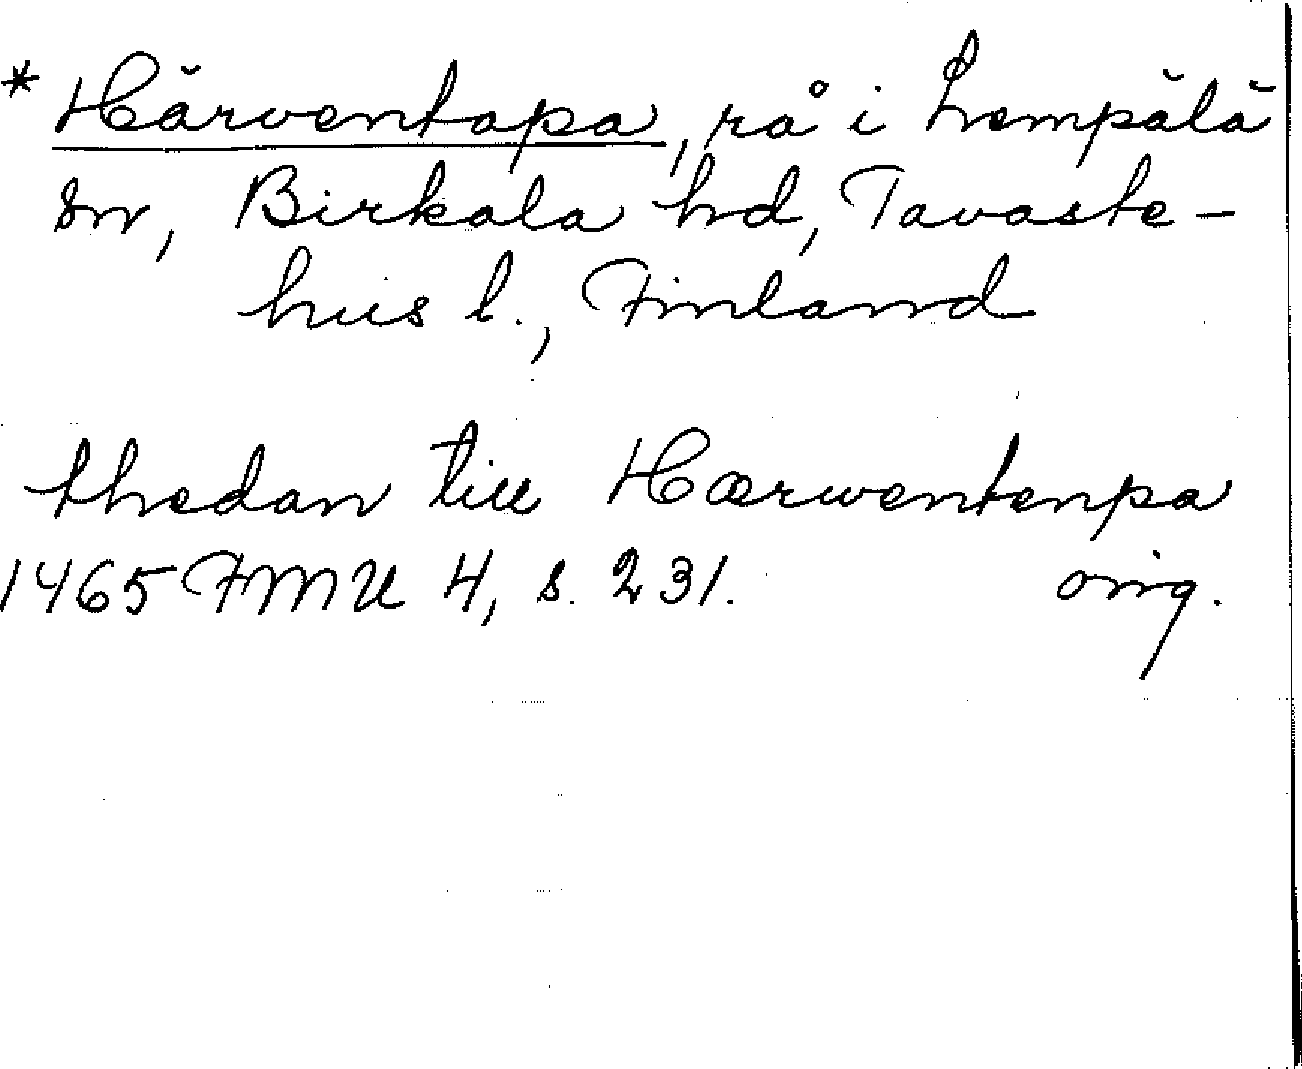 * Härventapa, rå i Lempälä
sn, Birkala hd, Tavaste-
hus l., Finland
thedan till Hærwentenpa
1465 FMU 4, s. 231. orig.